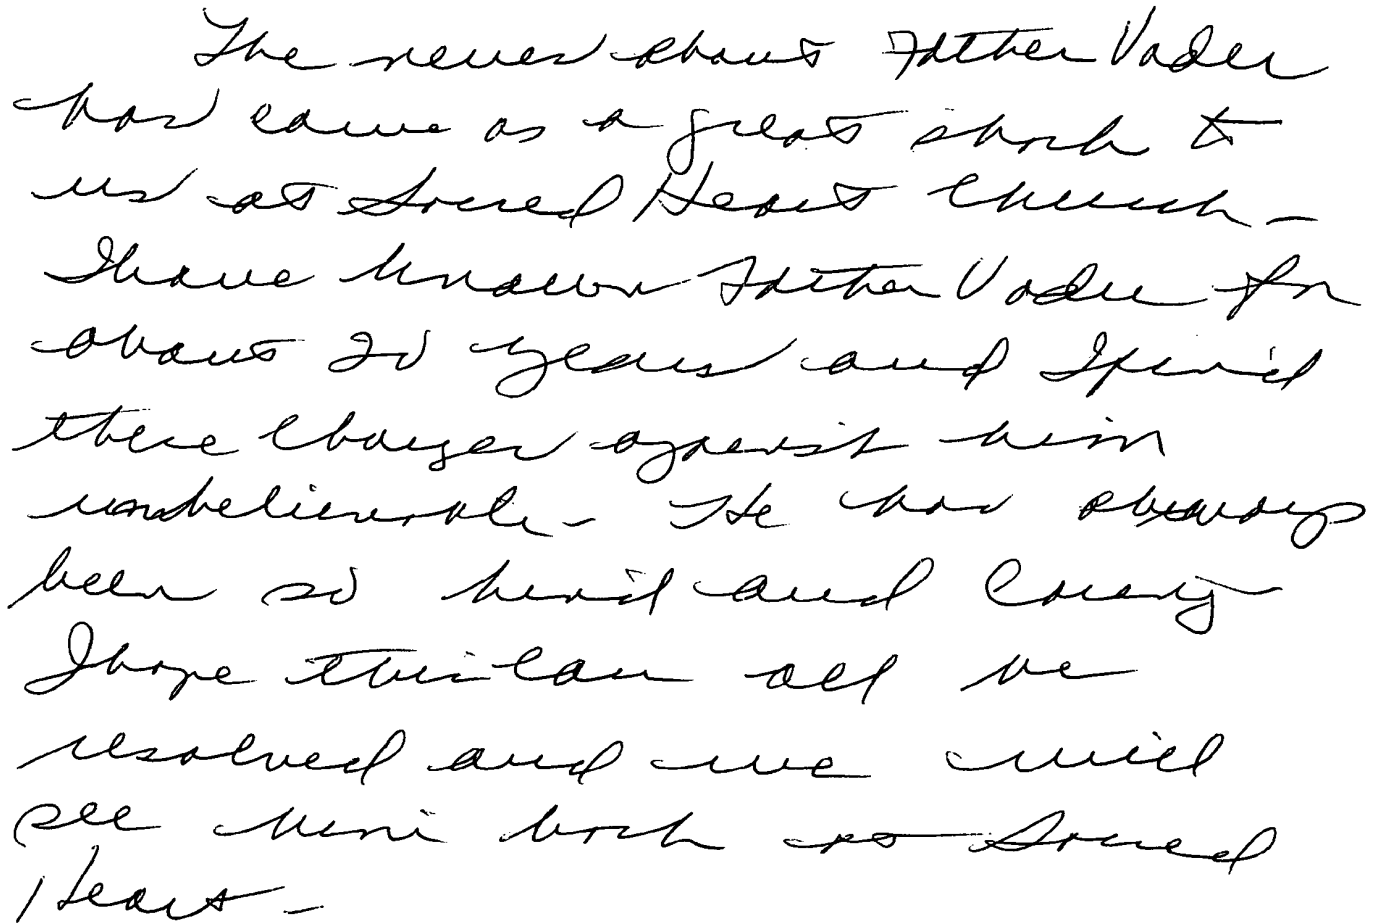 The news about Father Vader
has come as a great shock to
us at Sacred Heart Church -
I have known Father Vader for
about 20 years and I find
these charges against him
unbelievable - He has always
been so kind and caring
I hope this can all be
resolved and we will
see him back at Sacred
Heart -